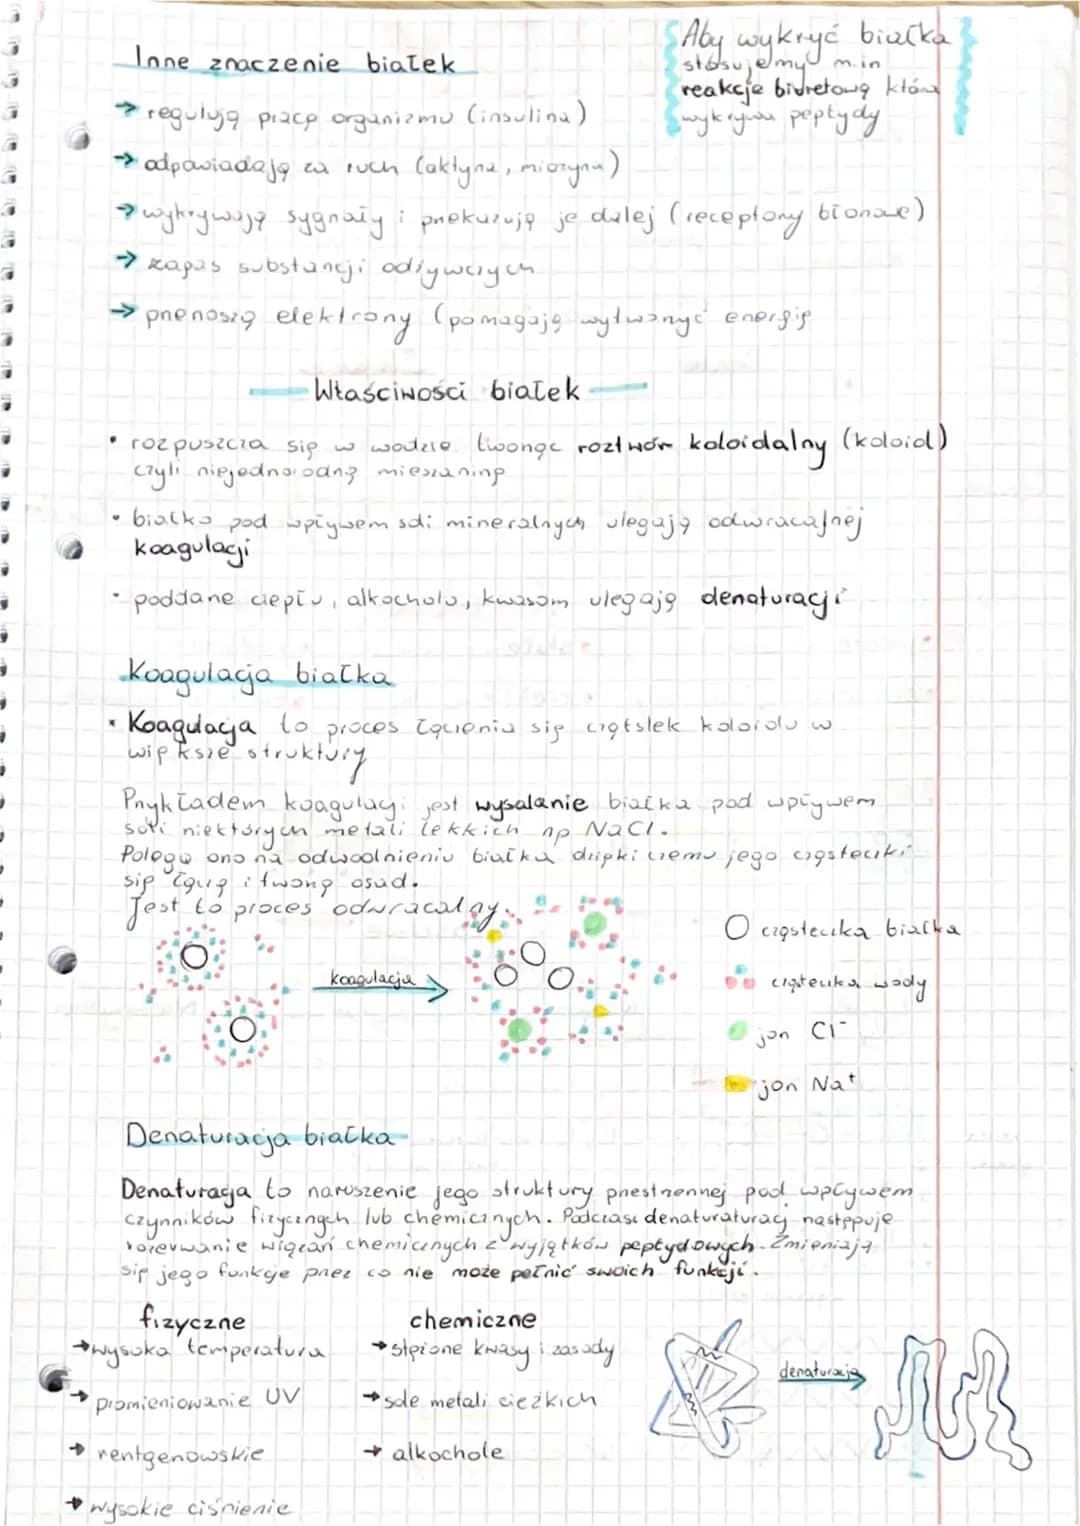 Aby wykryć białka
stosujemy m.in
reakcje biuretową która
wykrywa peptydy
Inne znaczenie białek
→ regulują pracę organizmu (insulina)
→ odpowiadają za ruch (aktyna, miozyna)
→ wykrywają sygnały i przekazują je dalej (receptory błonowe)
→ zapas substancji odżywczych
→ przenoszą elektrony (pomagają wytworzyć energię
Właściwości białek
• rozpuszcza się w wodzie tworząc roztwór koloidalny (koloid)
czyli niejednorodną mieszaninę
• białko pod wpływem soli mineralnych ulegają odwracalnej
koagulacji
• poddane ciepłu, alkocholu, kwasom ulegają denaturacji
Koagulacja białka
• Koagulacja to proces łączenia się koloidu w
większe struktury
Przykładem koagulacji jest wysalanie białka pod wpływem
soli niektórych metali lekkich np NaCl.
Polega ono na odwoolnieniu białka dzięki czemu jego cząsteczki
się łączą i tworzą osad.
Jest to proces odwracalny.
koagulacja
cząsteczka białka
cząsteczka wody
jon Cl⁻
jon Na⁺
Denaturacja białka
Denaturacja to naruszenie jego struktury przestrzennej pod wpływem
czynników fizycznych lub chemicznych. Podczas denaturaturacj następuje
rozerwanie wiązań chemicznych z wyjątków peptydowych. Zmieniają
się jego funkcje przez co nie może pełnić swoich funkcji.
fizyczne
→ wysoka temperatura
→ promieniowanie UV
→ rentgenowskie
→ wysokie ciśnienie
chemiczne
→ stężone kwasy i zasady
→ sole metali ciężkich
→ alkochole
denaturacja